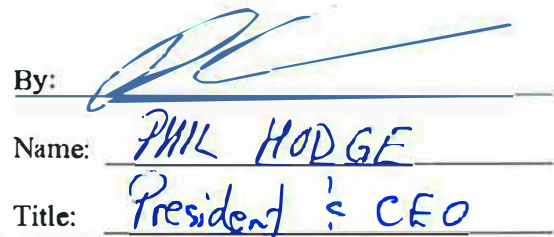 By:
Name: PHIL HODGE
Title: President & CEO